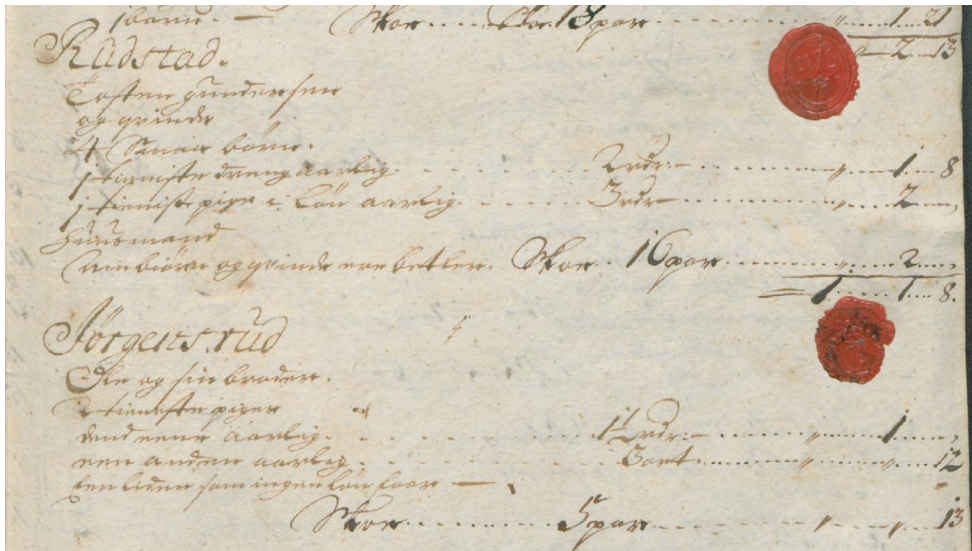 1 børn. — Skoe .... Skoe. 13 par ........ „ ..... 1 .. 21
„ — 2 .. 13
Rudstad.
Tosten Gundersen
og qvinde
4 Smaa børn.
1 tieniste dreng aarlig ........ 2 rdr:— ........ „ ..... 1 .... 8
1 tienist pige i løn aarlig ........ 3 rdr— ........ „ ..... 2 .... „
huusmand
og qvinde ere betler. Skoe .. 16 par ........ „ ..... 2 .... „
— 1 ..... 1 .... 8.
Jørgensrud
Ole og sin broder.
2 tieneste piger
dend eene aarlig. ........ 1½ rdr:— ........ „ ..... 1 .... „
een anden aarlig ........ 3 ort ........ „ ..... „ .... 12
een liden som ingen løn faar — „
Skoe ........ 5 par ........ „ ..... „ .... 13